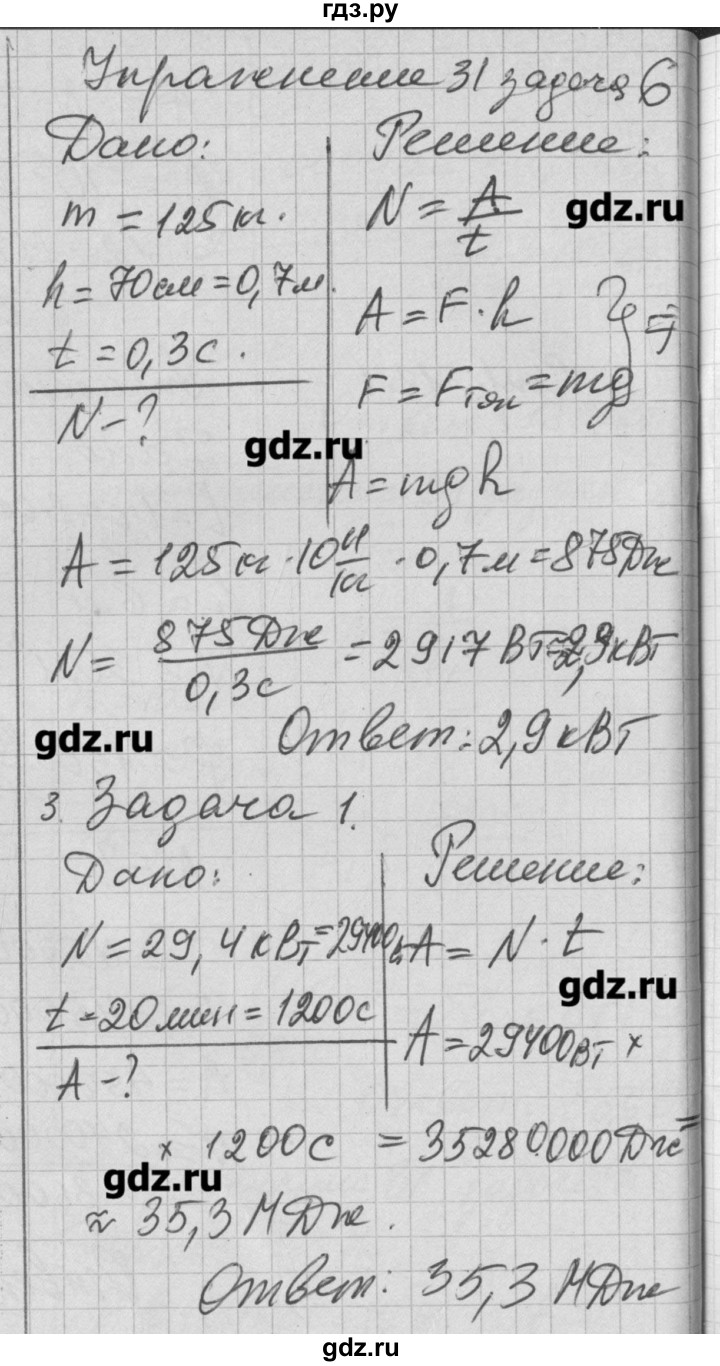 гдз.ру
Упражнение 31 задача 6
Дано:
m = 125 кг.
h = 70 см = 0,7 м.
t = 0,3 с.
N - ?
Решение:
N = A/t
gdz.ru
A = F · h } ⇒
F = Fтяж = mg
gdz.ru
A = mgh
A = 125 кг · 10 Н/кг · 0,7 м = 875 Дж
N = 875 Дж / 0,3 с = 2917 Вт = 2,9 кВт
gdz.ru
Ответ: 2,9 кВт
3. Задача 1.
Дано:
N = 29,4 кВт = 29400
t = 20 мин = 1200 с
A - ?
Решение:
A = N · t
gdz.ru
A = 29400 Вт ×
× 1200 с = 35280000 Дж =
gdz.ru
≈ 35,3 МДж.
Ответ: 35,3 МДж
gdz.ru